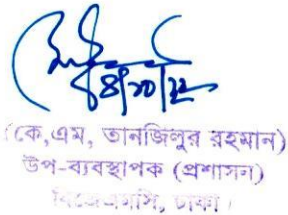 ৪/১০/২২
(কে,এম, তানজিলুর রহমান)
উপ-ব্যবস্থাপক (প্রশাসন)
বিজেএমসি, ঢাকা।